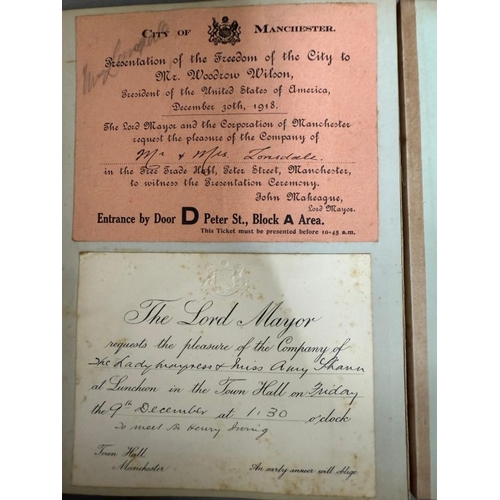 City of Manchester.
Mrs Lonsdale
Presentation of the Freedom of the City to
Mr. Woodrow Wilson,
President of the United States of America,
December 30th, 1918.
The Lord Mayor and the Corporation of Manchester
request the pleasure of the Company of
Mr & Mrs. Lonsdale.
in the Free Trade Hall, Peter Street, Manchester,
to witness the Presentation Ceremony.
John Makeague,
Lord Mayor.
Entrance by Door D Peter St., Block A Area.
This Ticket must be presented before 10-45 a.m.
The Lord Mayor
requests the pleasure of the Company of
The Lady Mayoress & Miss Amy Shann
at Luncheon in the Town Hall on Friday
the 9th December at 1.30 o'clock
To meet Sir Henry Irving
Town Hall
Manchester
An early answer will oblige